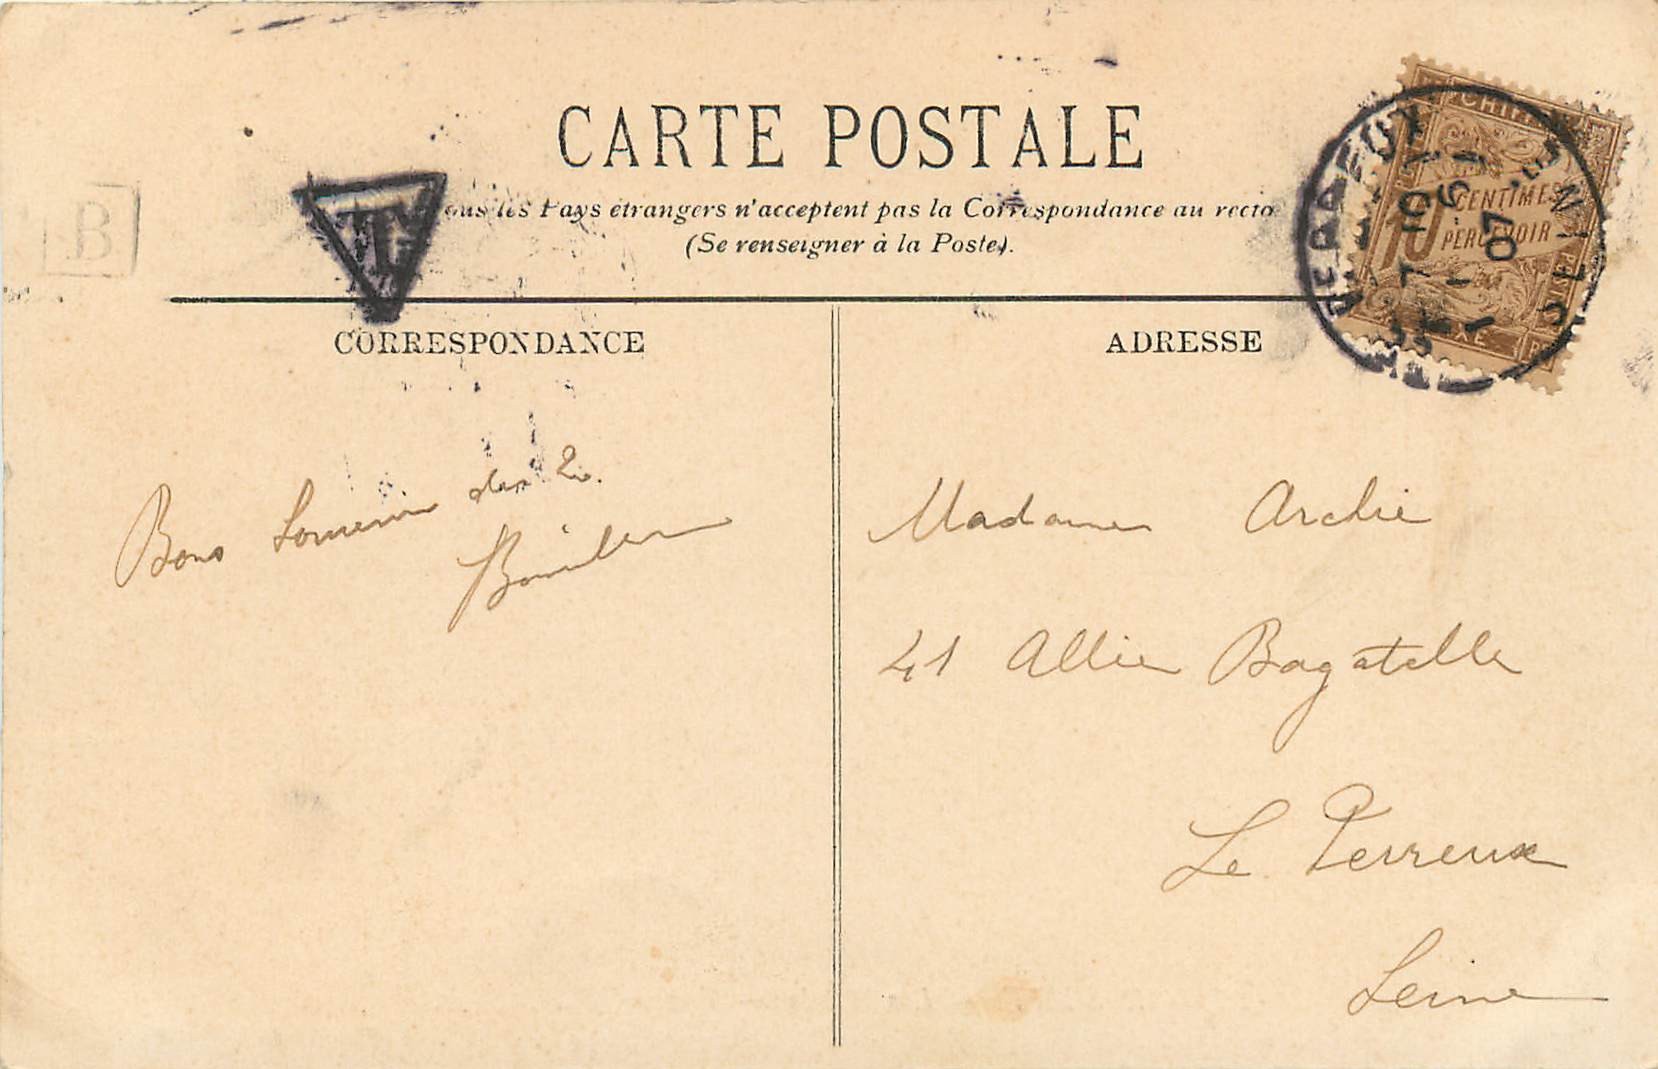 CARTE POSTALE
ous les Pays étrangers n'acceptent pas la Correspondance au recto
(Se renseigner à la Poste).
B
T
CHIFF
10 CENTIMES
PERCEVOIR
CORRESPONDANCE
ADRESSE
Bons Souvenirs des 2
Madame Archie
41 Allée Bagatelle
Le Perreux
Seine